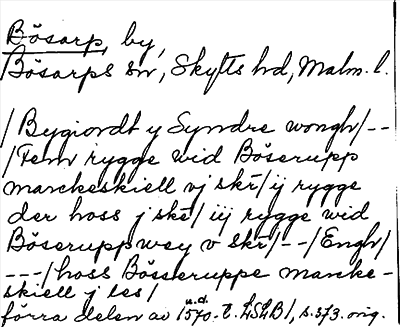 Bösarp, by,
Bösarps sn, Skytts hd, Malm. l.
/Bygiordt y Syndre wongh/--
/Fem rygge wid Böserupp
marckeskiell vj skr̄/ ij rygge
der hoss j skr̄/ iij rygge wid
Böseruppwey v skr̄/--/Engh/
---/hoss Bösseruppe marcke-
skiell j les/
förra delen av 1570-t. LSLB1, s.373. orig.
u.d.